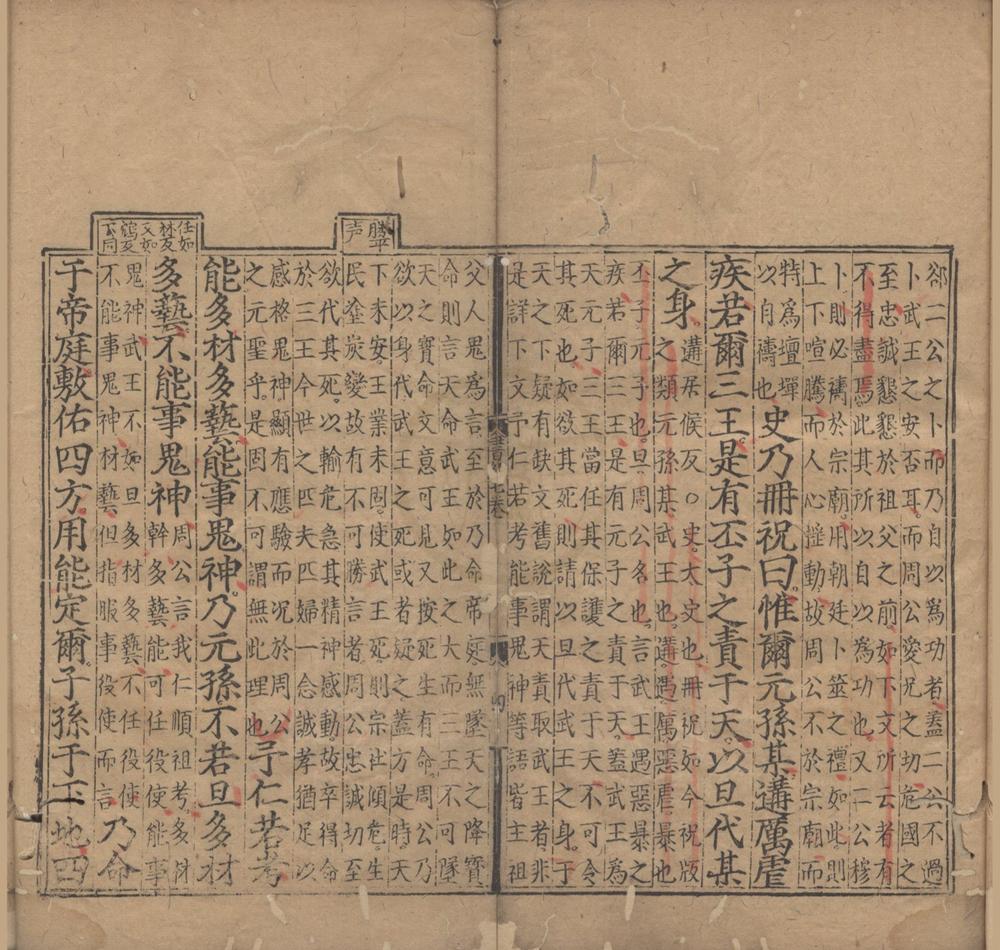 郤二公之卜而乃自以爲功者蓋二公不過
卜武王之安否耳而周公愛兄之切危國之
至忠誠懇懇於祖父之前如下文所云者有
不得盡焉此其所以自以爲功也又二公穆
卜則必禱於宗廟用朝廷卜筮之禮如此則
上下喧騰而人心搖動故周公不於宗廟而
特爲壇墠
以自禱也
史乃冊祝曰惟爾元孫某遘厲虐
疾若爾三王是有丕子之責于天以旦代某
之身
遘居候反○史太史也冊祝如今祝版
之類元孫某武王也遘遇厲惡虐暴也
丕子元子也旦周公名也言武王遇惡暴之
疾若爾三王是有元子之責于天蓋武王爲
天元子三王當任其保護之責于天不可令
其死也如欲其死則請以旦代武王之身于
天之下疑有缺文舊說謂天責取武王者非
是詳下文予仁若考能事鬼神等語皆主祖
父人鬼爲言至於乃命帝庭無墜天之降寶
命則言天命武王如此之大而三王不可墜
勝平
声
天之寶命文意可見又按死生有命周公乃
欲以身代武王之死或者疑之蓋方是時天
下未安王業未固使武王死則宗社傾危生
民塗炭變故有不可勝言者周公忠誠切至
欲代其死以輸危急其精神感動故卒得命
於三王今世之匹夫匹婦一念誠孝猶足以
感格鬼神顯有應驗而况於周公
之元聖乎是固不可謂無此理也
予仁若考
能多材多藝能事鬼神乃元孫不若旦多材
任如
林反
又如
鴆反
下同
多藝不能事鬼神
周公言我仁順祖考多材
幹多藝能可任役使能事
鬼神武王不如旦多材多藝不任役使
不能事鬼神材藝但指服事役使而言
乃命
于帝庭敷佑四方用能定爾子孫于下地四